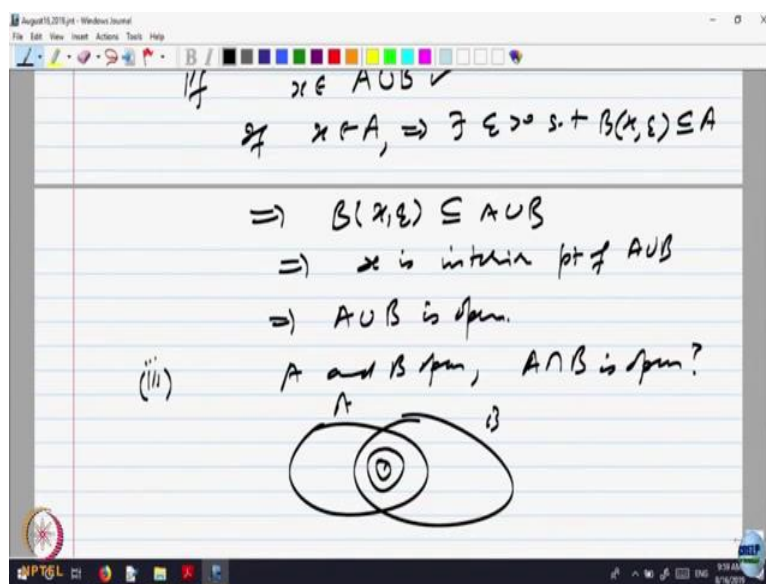 August16,2019.jnt - Windows Journal
File Edit View Insert Actions Tools Help
If x ∈ A∪B ✓
If x ∈ A, ⇒ ∃ ε > 0 s.t B(x, ε) ⊆ A
⇒ B(x, ε) ⊆ A∪B
⇒ x is interior pt of A∪B
⇒ A∪B is open.
(iii) A and B open, A∩B is open?
A B
NPTEL
ENG 9:59 AM
8/16/2019